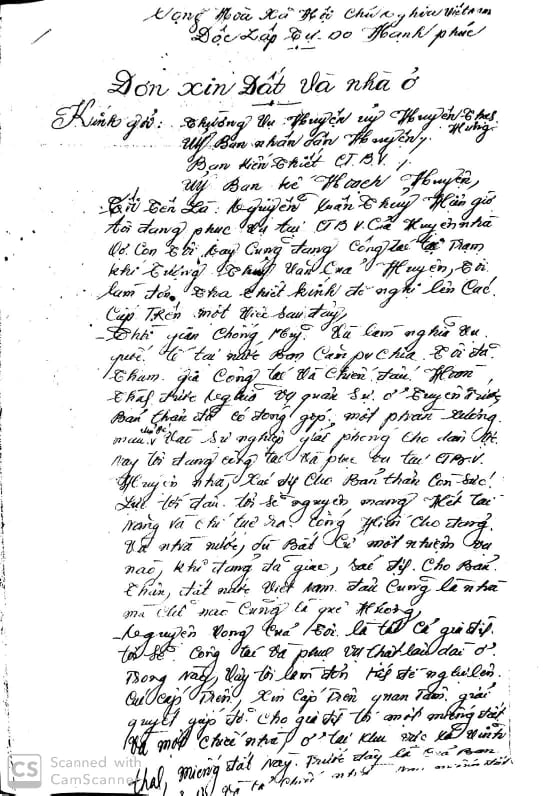 Cộng Hoà Xã Hội Chủ nghĩa Việt Nam
Độc Lập Tự do Hạnh phúc
Đơn xin Đất Và nhà ở
Kính gửi: Thường Vụ Huyện uỷ Huyện
Hưng
Uỷ Ban nhân dân Huyện,
Ban kiến Thiết CT.B.V.
Uỷ Ban kế Hoạch Huyện,
Tôi Tên Là: Nguyễn Xuân Thuỷ Hiện giờ
tôi đang phục vụ tại CTBV. Của Huyện nhà
Vợ. Con Tôi Nay Cũng đang Công tác tại Trạm
khí Tượng Thuỷ Văn Của Huyện, Tôi
làm đơn. Tha Thiết kính đề nghị lên Các
Cấp Trên một việc sau đây,
- Thời gian Chống Mỹ. Và làm nghĩa vụ
quốc tế tại nước Bạn Cămpuchia. Tôi đã
Tham gia Công tác Và Chiến đấu, Hoàn
Thành trước Nghĩa Vụ quân sự. ở
Bản thân đã có đóng góp một phần xương
máu Vào Sự nghiệp giải phóng Cho dân tộc
Nay tôi đang công tác Và phục vụ tại CTB.V.
Huyện nhà, Cho Bản thân Còn sức
tôi sẽ nguyện mang Hết tài
năng và chí tuệ ra Cống Hiến Cho đảng
Và nhà nước, dù Bất Cứ một nhiệm vụ
nào, khi đảng đã giao, Cho Bản
Thân, đất nước Việt Nam đâu Cũng là nhà
mà chỗ nào Cũng là quê Hương,
- Nguyện Vọng Của Tôi là Tất Cả gia đình
tôi sẽ Công tác Và phục vụ thật lâu dài ở
Trong này, Vậy tôi làm đơn đề nghị lên
cấp Trên, Xin Cấp Trên quan Tâm giải
quyết giúp đỡ Cho gia đình tôi một miếng đất
Và một Chiếc nhà, ở tại khu vực xã Vĩnh
miếng đất này. Trước đây là Của Ban
CS Scanned with
CamScanner